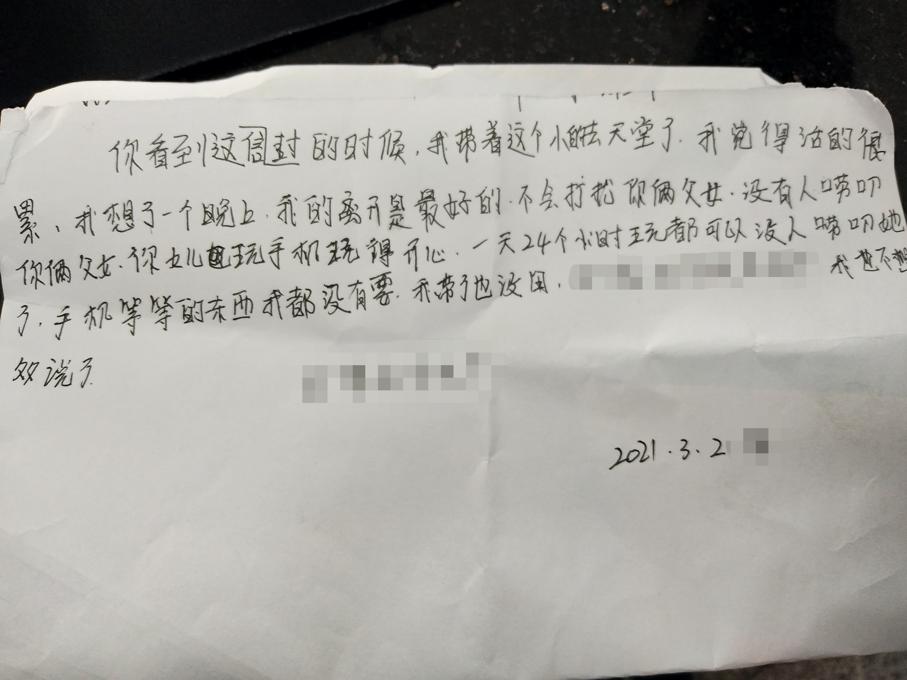 你看到这周封的时候，我带着这个小的去天堂了．我觉得活的很
累，我想了一个晚上．我的离开是最好的．不会打扰你俩父女．没有人唠叨
你俩父女．你女儿玩手机玩得开心．一天24个小时玩都可以没人唠叨她
了．手机等等的东西我都没有要．我带了也没用． 我也不想
多说了
2021．3．2